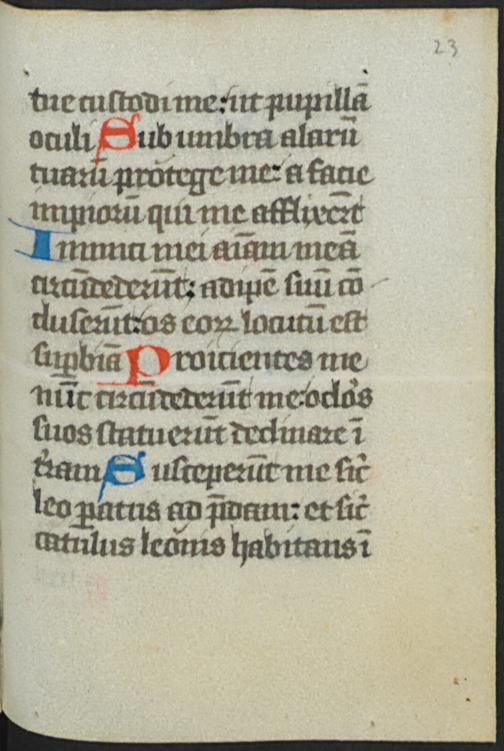 23
tue custodi me: ut pupillā
oculi Sub umbra alarū
tuarū protege me: a facie
impiorū qui me afflixerūt
Inimici mei aīam meā
circūdederūt: adipē suū cō
cluserūt: os eorꝝ locutū est
supbiā Proicientes me
nūc circūdederūt me: oclōs
suos statuerūt declinare ī
t̄ram Susceperūt me sic̄
leo patus ad p̄dam: et sic̄
catulus leonis habitans ī